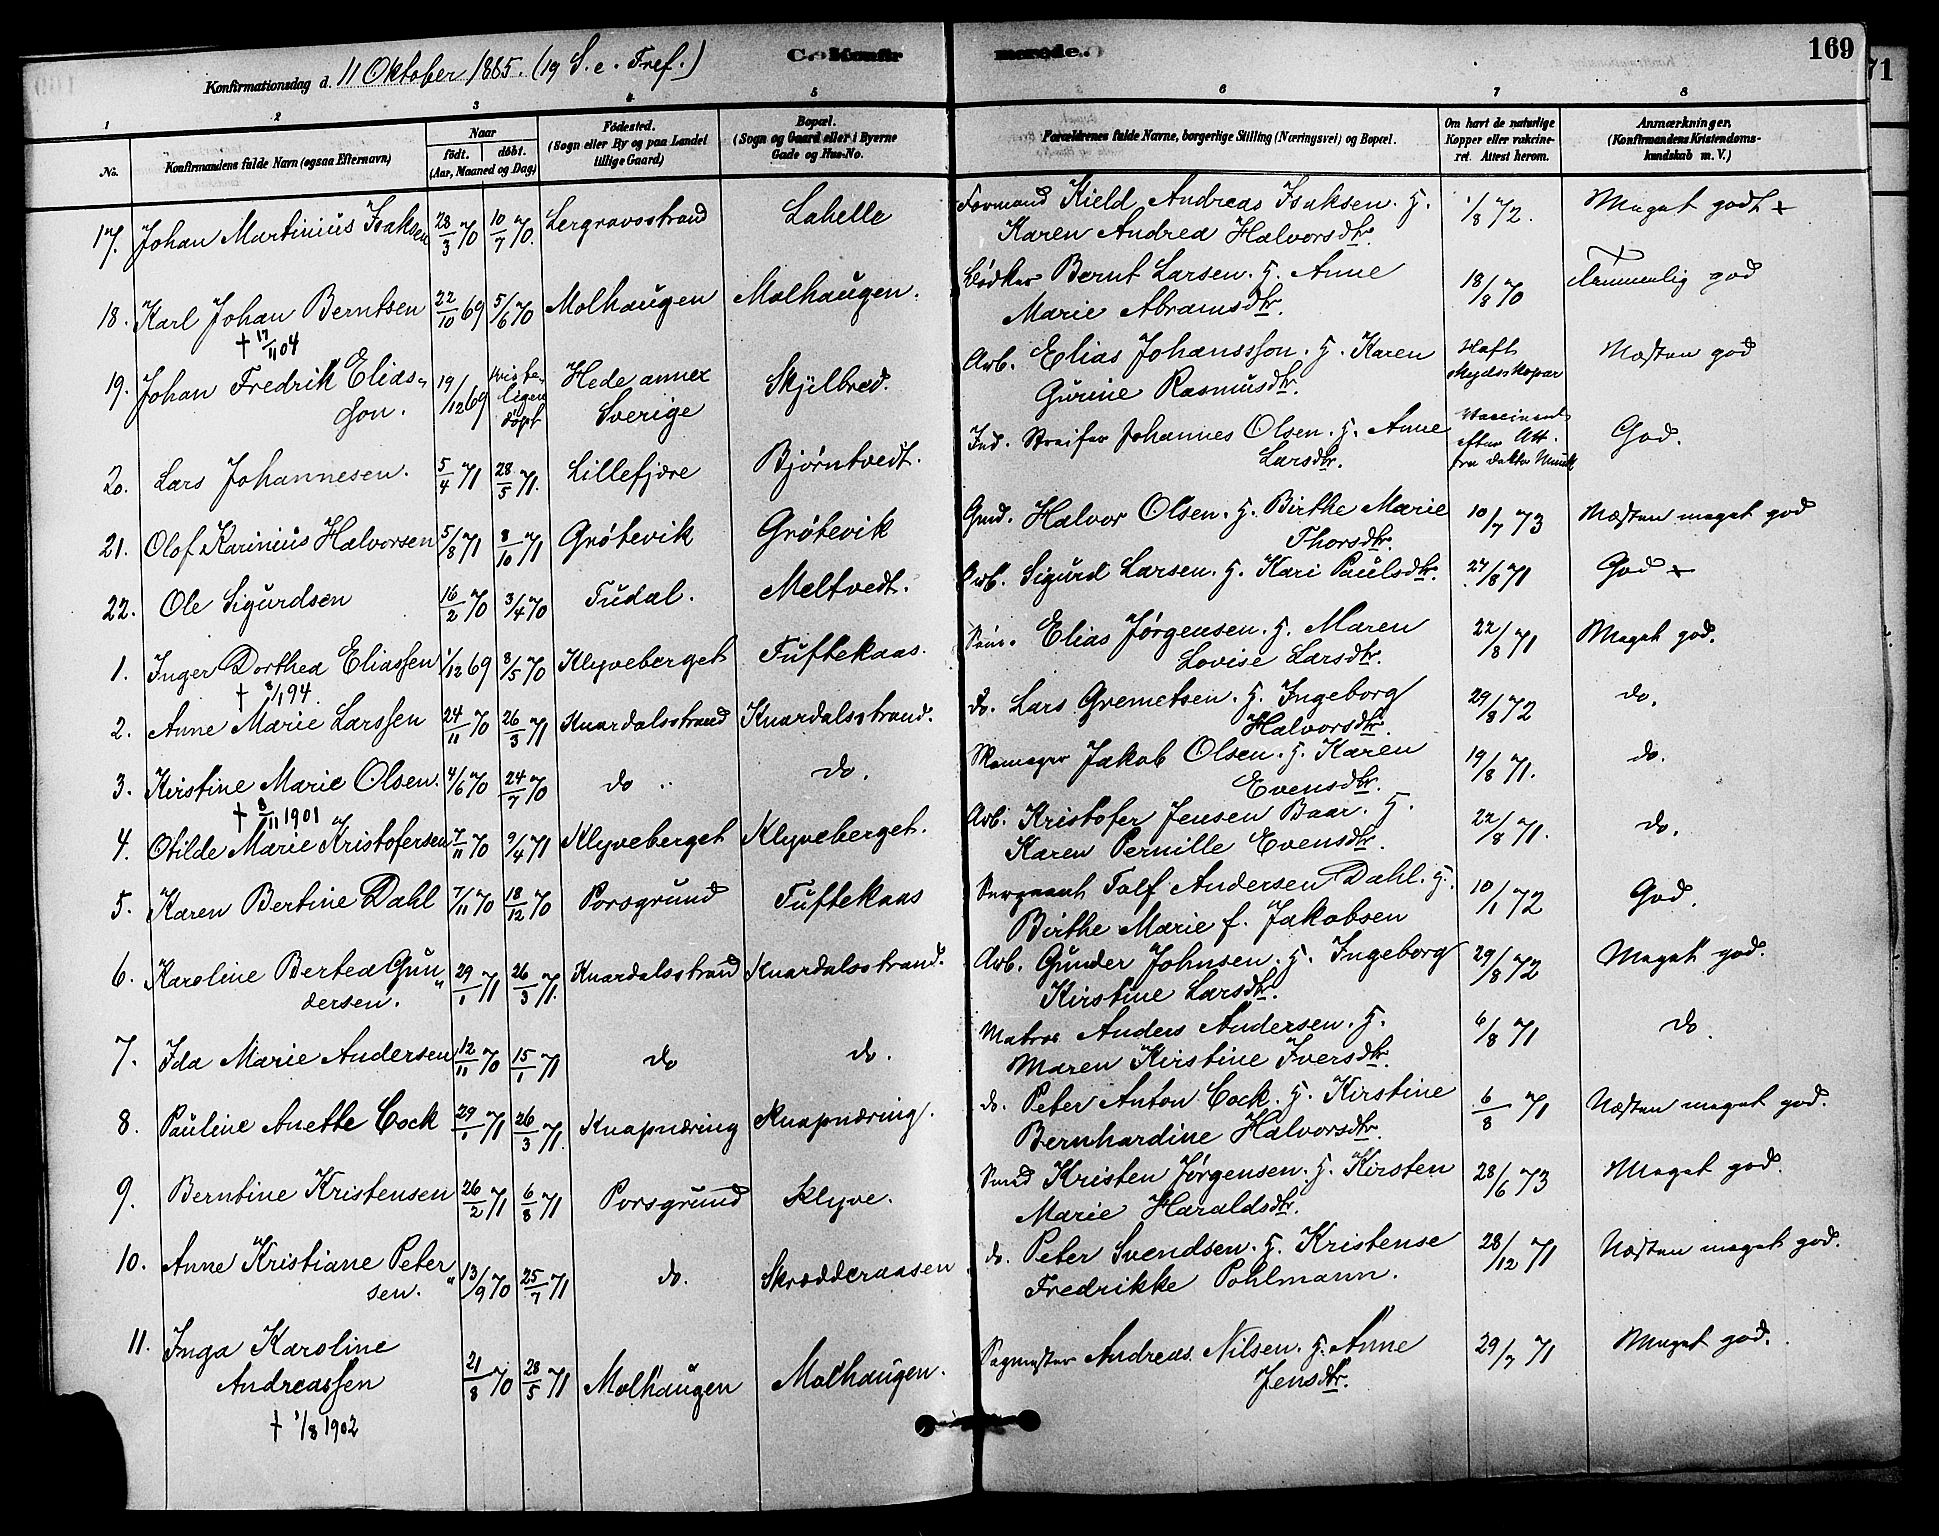 Konfirmationsdag d. 11 Oktober 1885. (19 S. e. Tref.) Konfirmerede. 169
71
1 2 3 4 5 6 7 8
No. Konfirmandens fulde Navn (ogsaa Efternavn) Naar født. døbt. (Aar, Maaned og Dag) Fødested. (Sogn eller By og paa Landet tillige Gaard) Bopæl. (Sogn og Gaard eller i Byerne Gade og Hus-No. Forældrenes fulde Navne, borgerlige Stilling (Næringsvei) og Bopæl. Om havt de naturlige Kopper eller vakcineret. Attest herom. Anmærkninger, (Konfirmandens Kristendomskundskab m. V.)
17. Johan Martinius Isaksen 28/3 70 10/7 70. Lergravsstrand Lahelle Formand Kield Andreas Isaksen. H. 1/8 72. Meget godt
Karen Andrea Halvorsdtr.
18. Karl Johan Berntsen 22/10 69 5/6 70 Molhaugen Molhaugen. Bødker Bernt Larsen. H. Anne 18/8 70 Temmelig god
† 17/11 04 Marie Abramsdtr.
19. Johan Fredrik Elias- 19/12 69 Hede annex Skjelbred. Arb. Elias Johansson. H. Karen Haft Næsten god
son. døpt Sverige Gurine Rasmusdtr. skydskopar
20. Lars Johannesen. 5/4 71 28/5 71. Lillefjære Bjørntvedt. Ind. Streifer Johannes Olsen. H. Anne Vaccineret God.
Larsdtr. efter Att. fra doktor Munk
21. Olof Karinius Halvorsen 5/8 71 8/10 71 Grøtevik Grøtevik Gmd. Halvor Olsen. H. Birthe Marie 10/7 73 Næsten meget god
Thorsdtr.
22. Ole Sigurdsen 16/2 70 3/4 70 Tudal. Meltvedt. Arb. Sigurd Larsen. H. Kari Paulsdtr. 27/8 71 God
1. Inger Dorthea Eliassen 1/12 69 8/5 70 Klyveberget Tuftekaas. Elias Jørgensen. H. Maren 22/8 71 Meget god.
† 8/1 94. Lovise Larsdtr.
2. Anne Marie Larssen 24/11 70 26/3 71 Knardalsstrand Knardalsstrand. do. Lars Gremetsen. H. Ingeborg 29/8 72 do.
Halvorsdtr.
3. Kirstine Marie Olsen. 4/6 70 24/7 70 do do. Skomager Jakob Olsen. H. Karen 19/8 71. do.
† 8/11 1901 Evensdtr.
4. Otilde Marie Kristofersen 7/11 70 9/4 71 Klyveberget Klyveberget. Arb. Kristofer Jensen Baar. H. 22/8 71. do.
Karen Pernille Evensdtr.
5. Karen Bertine Dahl 7/11 70 18/12 70 Porsgrund Tuftekaas Sergeant Tolf Andersen Dahl. H. 10/1 72 God.
Birthe Marie f. Jakobsen
6. Karoline Bertea Gun- 29/1 71 26/3 71. Knardalsstrand Knardalsstrand. Arb. Gunder Johnsen. H. Ingeborg 29/8 72 Meget god.
dersen. Kirstine Larsdtr.
7. Ida Marie Andersen 12/11 70 15/1 71 do do. Matros Anders Andersen. H. 6/8 71 do.
Maren Kirstine Iversdtr.
8. Pauline Anette Cock 29/1 71 26/3 71. Knapnæring Knapnæring. do. Peter Anton Cock. H. Kirstine 6/8 71 Næsten meget god.
Bernhardine Halvorsdtr.
9. Berntine Kristensen 26/2 71 6/8 71 Porsgrund Klyve. Smed Kristen Jørgensen. H. Kirsten 28/6 73 Meget god.
Marie Haraldsdtr.
10. Anne Kristiane Peter- 13/9 70 25/7 71 do. Skrædderaasen do. Peter Svendsen. H. Kristense 28/12 71 Næsten meget god.
sen. Fredrikke Pohlmann.
11. Inga Karoline
Andreassen 21/8 70 28/5 71 Molhaugen Molhaugen. Sagmester Andreas Nilsen. H. Anne 29/7 71 Meget god.
† 1/8 1902 Jensdtr.